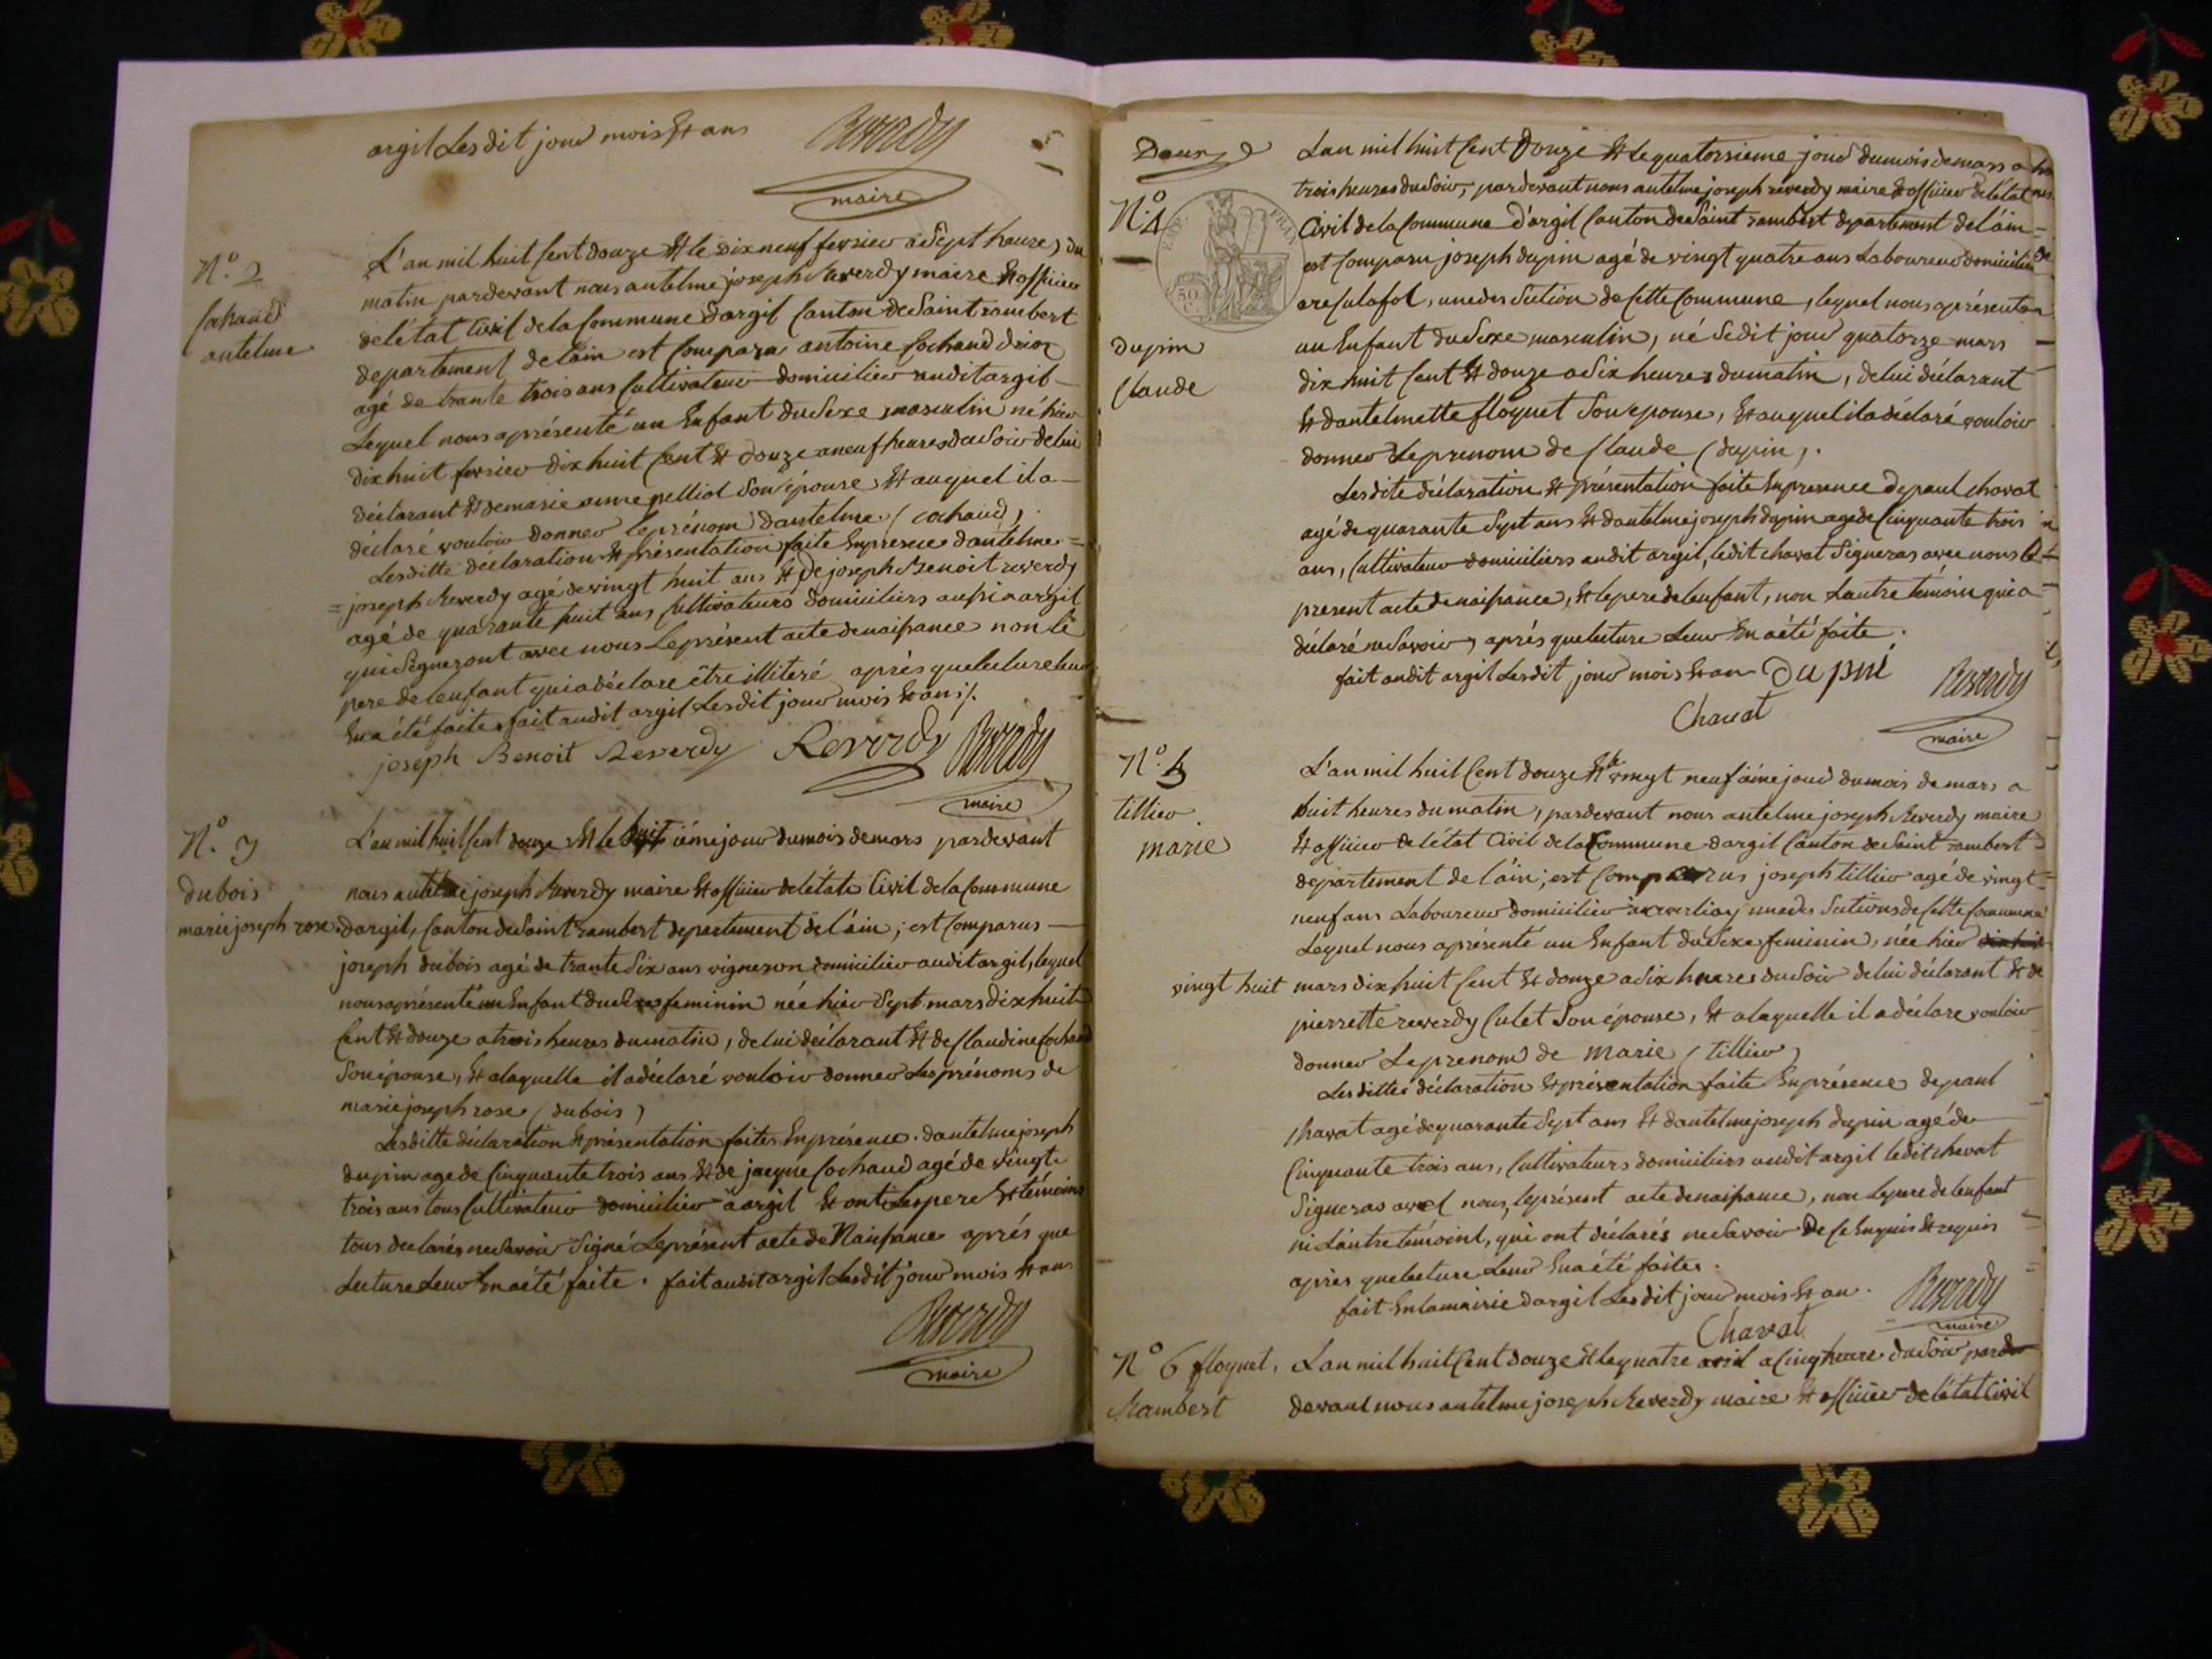 argil Lesdit jour mois Et ans
Reverdy
maire
N.o 2
Cochaud
antelme
L'an mil huit Cent douze Et le dix neuf fevrier a Sept heures du
matin pardevant nous antelme joseph Reverdy maire Et officier
de létat Civil de la Commune dargil Canton de Saint rambert
departement de lain est Comparu antoine Cochaud
agé de trante trois ans Cultivateur domicilier audit argil
Lequel nous a présenté un Enfant du Sexe masculin né hier
dix huit fevrier dix huit Cent Et douze a neuf heures du Soir de lui
déclarant Et de marie anne pelliot Son épouse Et auquel il a
déclaré vouloir donner le prénom dantelme (Cochaud)
Lesditte déclaration Et présentation faite En presence dantelme
= joseph Reverdy agé de vingt huit ans Et de joseph Benoit reverdy
agé de quarante huit ans Cultivateurs domiciliers aussi a argil
qui Signeront avec nous Le présent acte de naissance non le
pere de lenfant qui a déclare être illiteré après que lecture leur
En a été faite fait audit argil Lesdit jour mois Et ans
joseph Benoit Reverdy Reverdy Reverdy
maire
N.o 3
dubois
marie joseph rose
L'an mil huit Cent douze Et le huit ième jour du mois de mars pardevant
nous antelme joseph Reverdy maire Et officier de létate Civil de la Commune
dargil, Canton de Saint rambert departement de l'ain ; est Comparus
joseph dubois agé de trante Six ans vigneron domicilier audit argil, lequel
nous a présenté un Enfant du Sexe feminin née hier Sept mars dix huit
Cent Et douze a trois heures du matin, de lui déclarant Et de Claudine Cochaud
Son épouse, Et a laquelle il a déclaré vouloir donner Les prénoms de
marie joseph rose (dubois)
Lesditte déclaration Et présentation faites En présence dantelme joseph
dupin age de Cinquante trois ans Et de jacque Cochaud agé de vingt
trois ans tous Cultivateur domicilier a argil Et ont Les pere Et témoins
tous declarés ne Savoir Signé Le présent acte de Naissance après que
Lecture Leur En a été faite. fait audit argil Lesdit jour mois Et ans
Reverdy
maire
Douze
N.o 4
dupin
Claude
Lan mil huit Cent Douze Et le quatorsieme jour du mois de mars a
trois heures du Soir, pardevant nous antelme joseph reverdy maire Et officier de létat
Civil de la Commune D'argil Canton de Saint rambert departement de l'ain
est Comparu joseph dupin agé de vingt quatre ans Laboureur domicilier
a reculafol, une des Section de Cette Commune, lequel nous a présenté
un Enfant du Sexe masculin, né Sedit jour quatorze mars
dix huit Cent Et douze a Six heures du matin, de lui déclarant
Et dantelmette floquet Son epouse, Et auquel il a déclaré vouloir
donner Le prenom de Claude (dupin).
Lesdite déclaration Et présentation faite En presence de paul chavat
agé de quarante Sept ans Et dantelme joseph dupin age de Cinquante trois
ans, Cultivateur domiciliers audit argil, ledit chavat Signeras avec nous le
present acte de naissance, Et le pere de lenfant, non Lautre témoin qui a
déclaré ne Savoir, aprés que lecture Leur En a été faite.
fait audit argil Lesdit jour mois Et an Dupin
Reverdy
Chavat
maire
N.o 5
tillier
marie
L'an mil huit Cent douze Et le vingt neuf ième jour du mois de mars a
huit heures du matin, pardevant nous antelme joseph Reverdy maire
Et officier de létat Civil de la Commune dargil Canton de Saint rambert
departement de l'ain ; est Comparus joseph tillier agé de vingt
neuf ans Laboureur domicilier une des Sections de Cette Commune
Lequel nous a présenté un Enfant du Sexe feminin, née hier
vingt huit mars dix huit Cent Et douze a dix heures du Soir de lui déclarant Et de
pierrette reverdy Culet Son épouse, Et a laquelle il a déclare vouloir
donner Le prenom de marie (tillier)
Lesdittes déclaration Et présentation faite En présence de paul
Chavat agé de quarante Sept ans Et dantelme joseph dupin agé de
Cinquante trois ans, Cultivateurs domiciliers audit argil ledit chavat
Signeras avec nous, le présent acte de naissance, non Le pere de lenfant
ni Lautre témoint, qui ont déclarés ne Savoir De Ce Enquis Et requis
apres que lecture Leur En a été faites.
fait En la mairie dargil Lesdit jour mois Et an.
Reverdy
Chavat
maire
N.o 6 floquet,
Rambert
Lan mil huit Cent douze Et le quatre avril a Cinq heure du Soir par
devant nous antelme joseph Reverdy maire Et officier de létat Civil